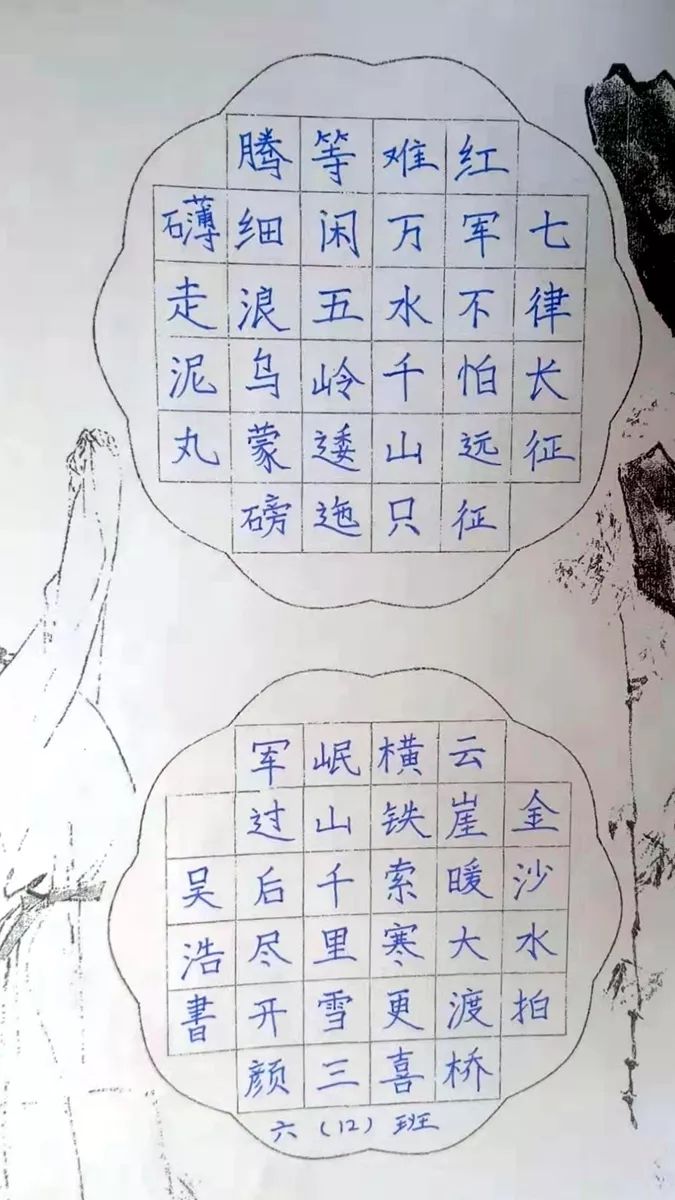 七律长征
红军不怕远征
难万水千山只
等闲五岭逶迤
腾细浪乌蒙磅
礴走泥丸
金沙水拍
云崖暖大渡桥
横铁索寒更喜
岷山千里雪三
军过后尽开颜
吴浩書
六（12）班